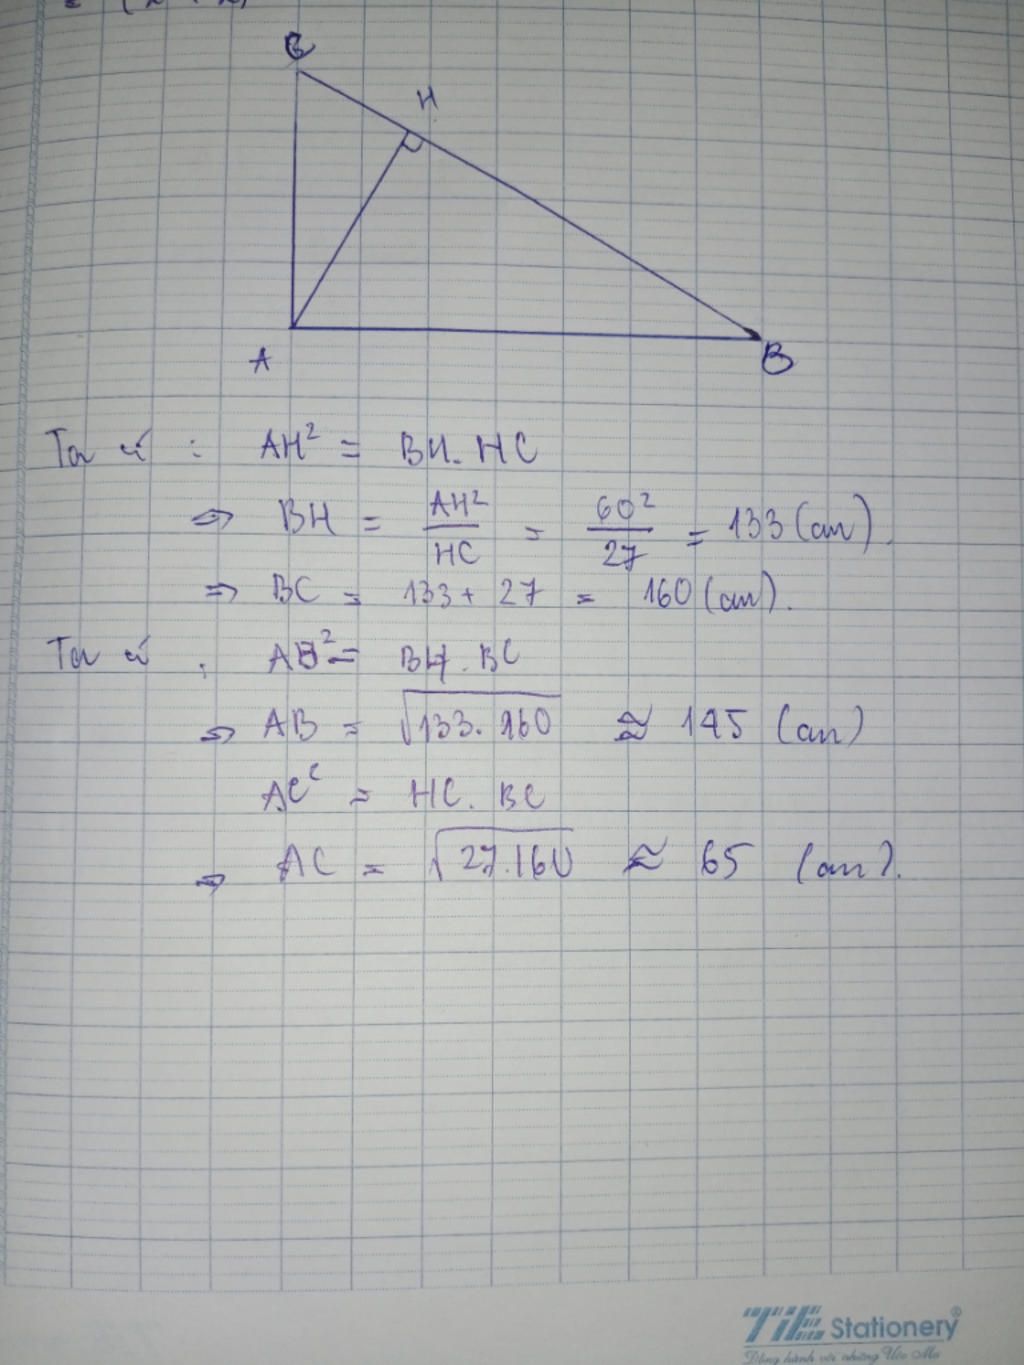 C
H
A
B
Ta có : AH² = BH. HC
⇒ BH = AH²/HC = 60²/27 = 133 (cm).
⇒ BC = 133 + 27 = 160 (cm).
Ta có : AB² = BH. BC
⇒ AB = √133.160 ≈ 145 (cm)
AC² = HC. BC
⇒ AC = √27.160 ≈ 65 (cm).
TiE Stationery®
Đồng hành với những Ước Mơ